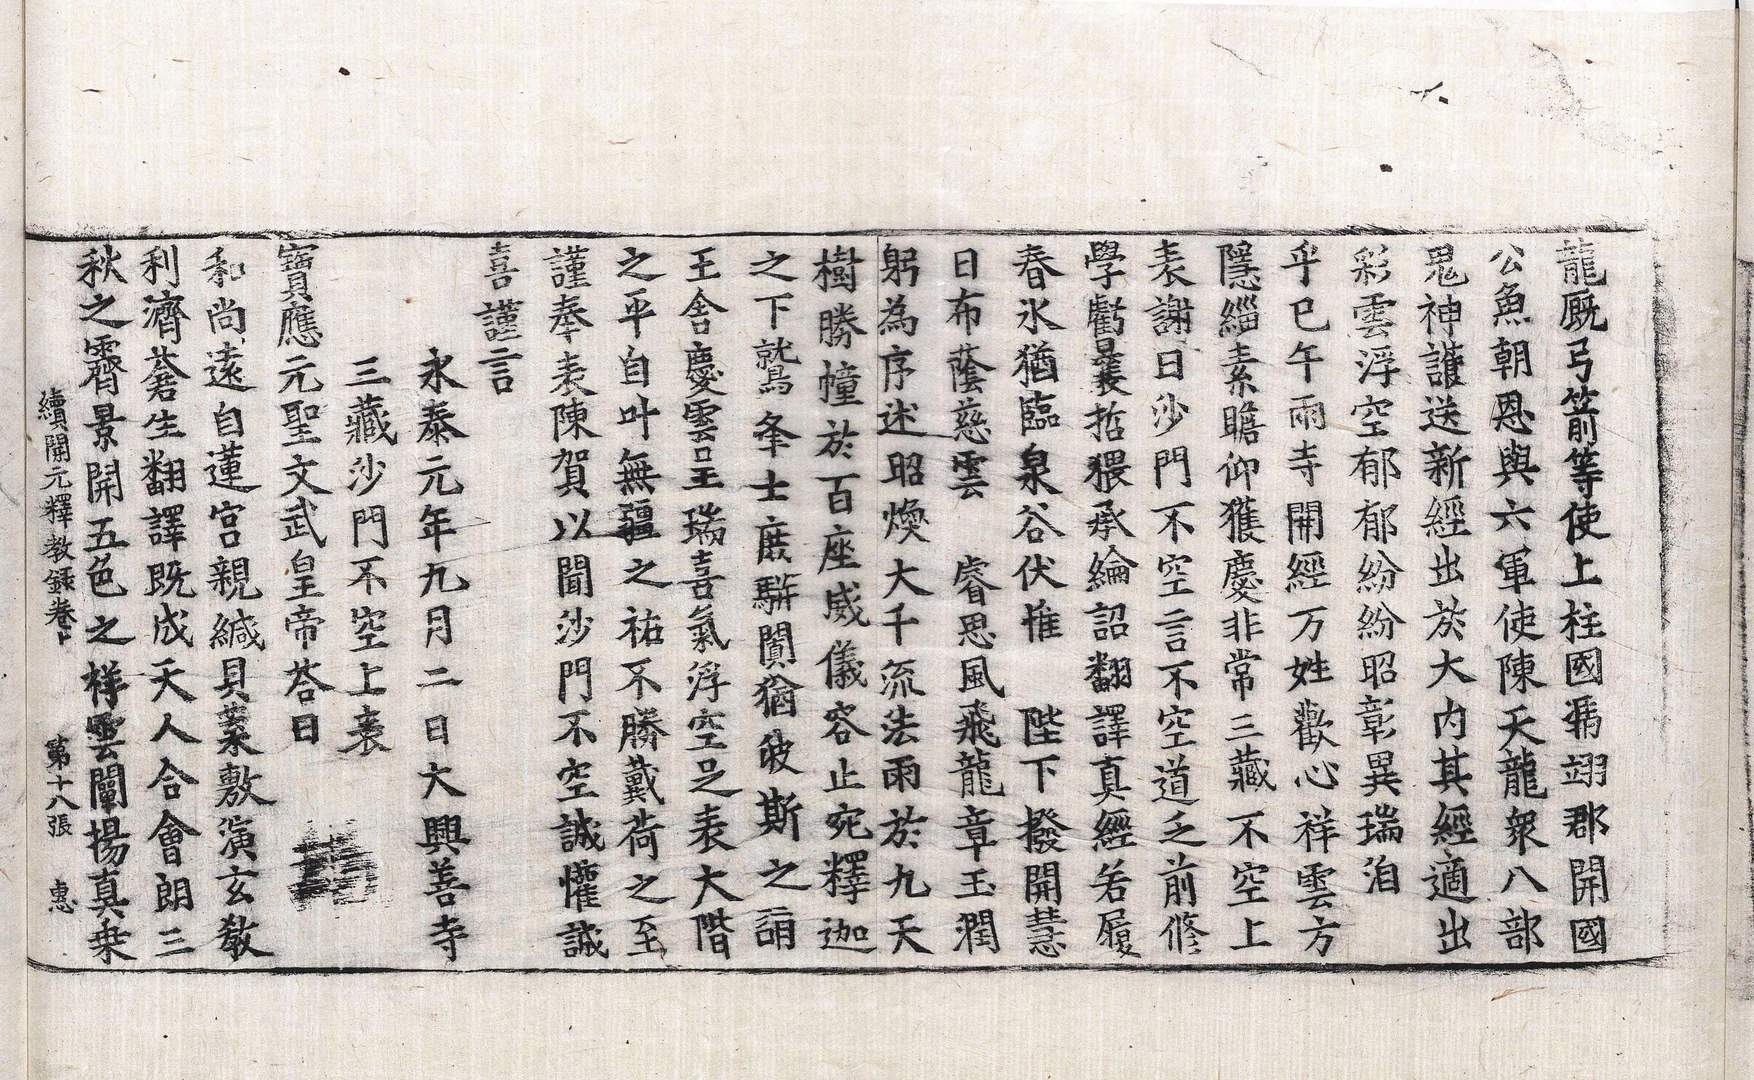 龍厩弓箭等使上柱國馮翊郡開國
公魚朝恩與六軍使陳天龍衆八部
鬼神護送新經出於大內其經適出
彩雲浮空郁郁紛紛昭彰異瑞洎
乎巳午兩寺開經万姓歡心祥雲方
隱緇素瞻仰獲慶非常三藏不空上
表謝曰沙門不空言不空道乏前修
學虧曩哲猥承綸詔翻譯真經若履
春氷猶臨泉谷伏惟　陛下撥開慧
日布蔭慈雲　睿思風飛龍章玉潤
躬為序述昭煥大千流法雨於九天
樹勝幢於百座威儀容止宛釋迦
之下鷲峯士庶駢闐猶波斯之詣
王舍慶雲呈瑞喜氣浮空足表大階
之平自叶無疆之祐不勝戴荷之至
謹奉表陳賀以聞沙門不空誠懽誠
喜謹言
永泰元年九月二日大興善寺
三藏沙門不空上表
寶應元聖文武皇帝荅曰
和尚遠自蓮宮親緘貝葉敷演玄教
利濟蒼生翻譯既成天人合會朗三
秋之霽景開五色之祥雲闡揚真乗
續開元釋教録卷上　第十八張　惠